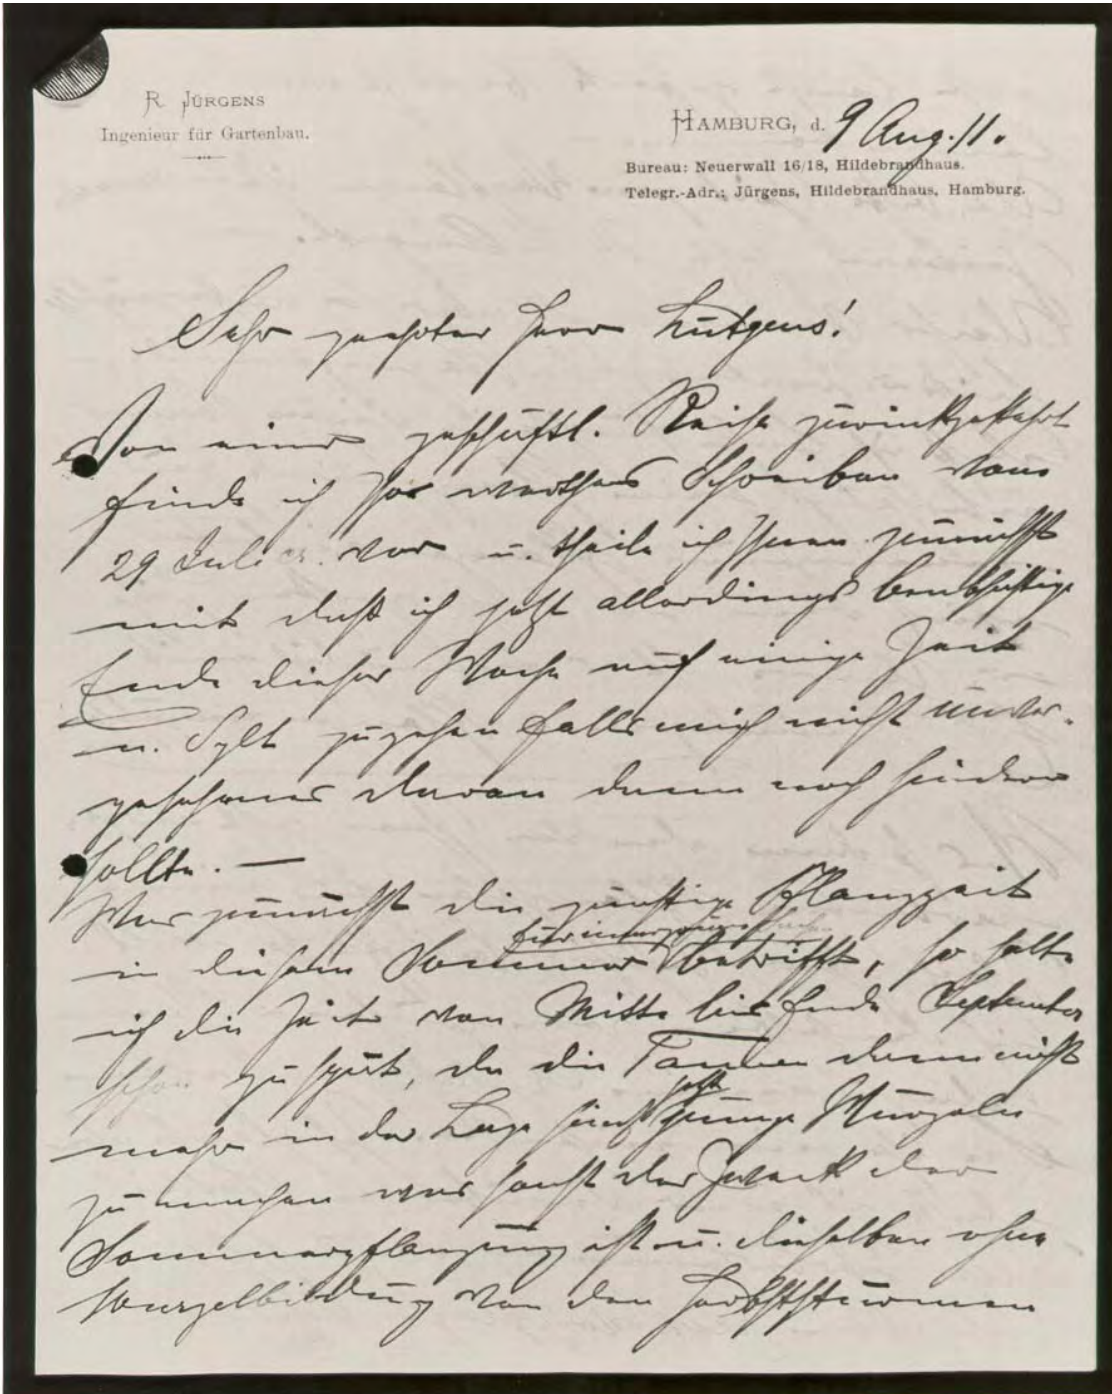 R. JÜRGENS
Ingenieur für Gartenbau.
HAMBURG, d. 9 Aug. 11.
Bureau: Neuerwall 16/18, Hildebrandhaus.
Telegr.-Adr.: Jürgens, Hildebrandhaus, Hamburg.
Sehr geehrter Herr Lütgens!
Von einer geschäftl. Reise zurückgekehrt
finde ich Ihr werthes Schreiben vom
29 Juli cr. vor u. theile ich Ihnen zunächst
mit daß ich jetzt allerdings beabsichtige
Ende dieser Woche auf einige Zeit
n. Sylt zu gehen falls mich nicht unvor-
gesehenes daran dann noch hindern
sollte. —
Was zunächst die günstige Pflanzzeit
für
in diesem Sommer betrifft, so halte
ich die Zeit von Mitte bis Ende September
schon zu spät, da die Tannen dann nicht
mehr in der Lage sind jetzt junge Wurzeln
zu machen was sonst der Zweck der
Sommerpflanzung ist u. dieselben ohne
Wurzelbildung von den Herbststürmen